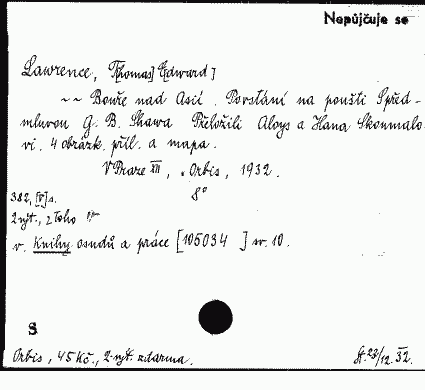 Nepůjčuje se
Lawrence, T[homas] E[dward]
~~ Bouře nad Asií. Povstání na poušti S před-
mluvou G. B. Shawa Přeložili Aloys a Hana Skoumalo-
vi. 4 obrázk. příl. a mapa.
V Praze XII, Orbis, 1932.
8°
382, [V] s.
2 výt., z toho
v. Knihy osudů a práce [105034 ] sv. 10.
S
Orbis, 45 Kč., 2. výt. zdarma.
St. 23/12. 32.